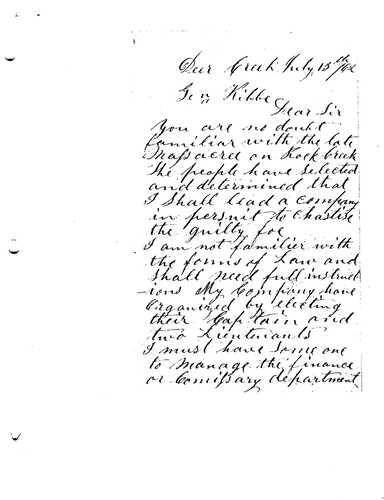 Deer Creek July, 15th /62
Gen Kibbe
Dear Sir
You are no doubt
familiar with the late
Massacred on Rock Creek
The people have selected
and determined that
I Shall lead a company
in persuit to chastise
the guilty foe
I am not familier with
the forms of Law and
Shall need full instruct
-ions My Company have
Organized by electing
their Captain and
two Lieutenants
I must have some one
to manage the finance
or Comissary department